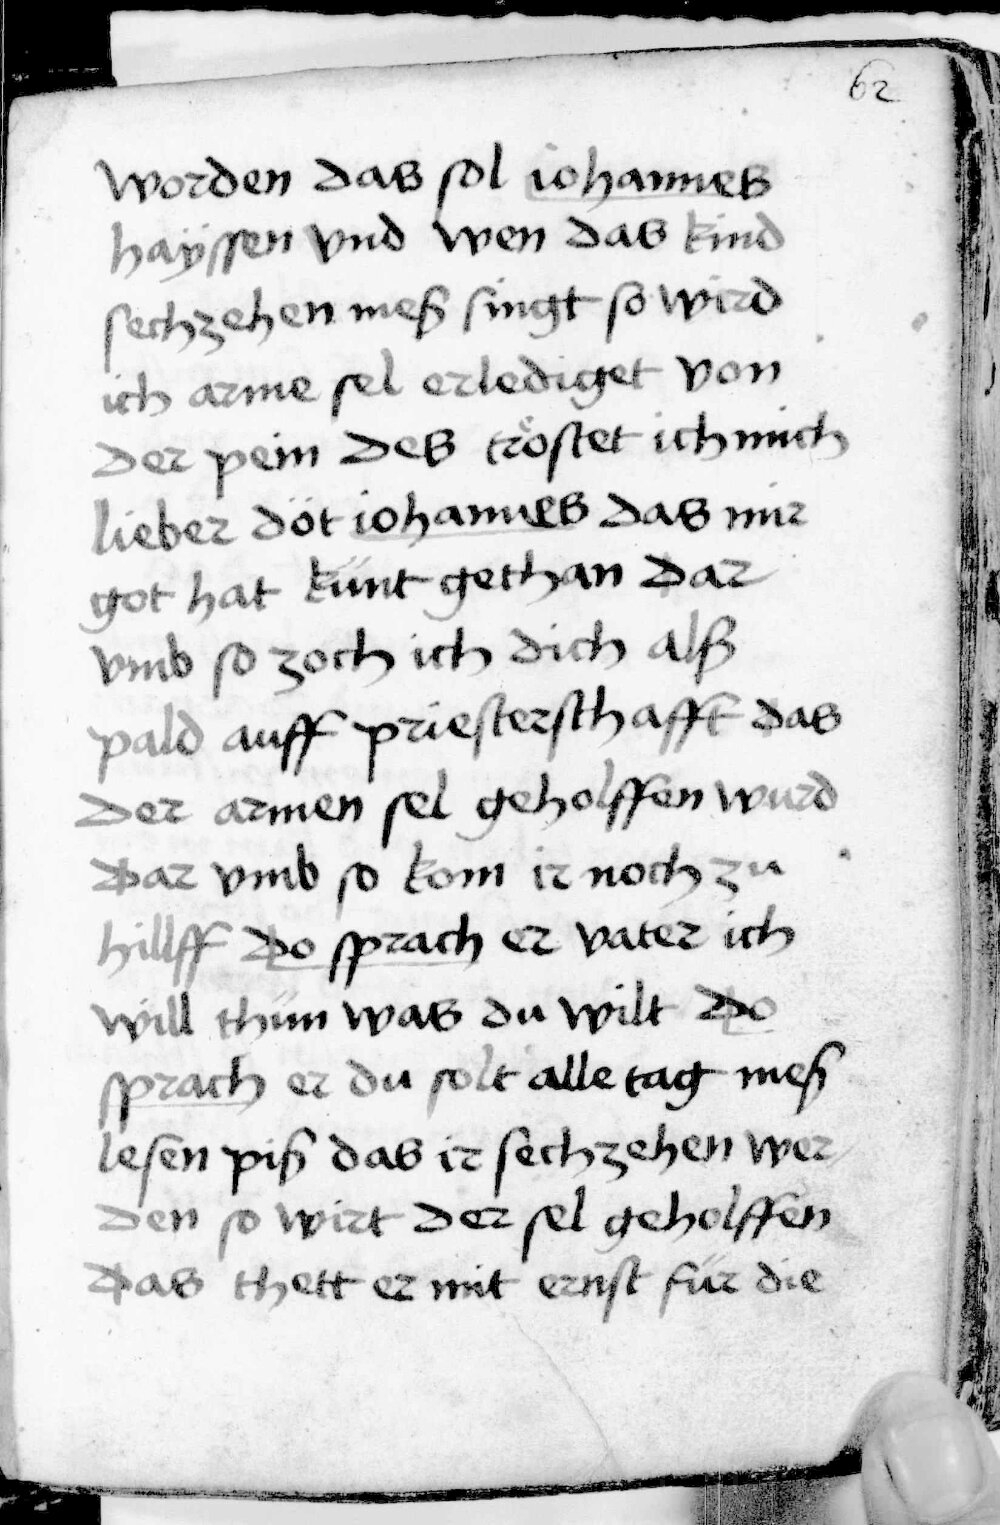 62
worden das sol iohannes
haÿssen vnd wen das kind
sechzehen meß singt so wird
ich arme sel erlediget von
der pein des tröstet ich mich
lieber döt iohannes das mir
got hat künt gethan dar
vmb so zoch ich dich alß
pald auff priesterschafft das
der armen sel geholffen wurd
Dar vmb so kom ir noch zu
hillff Do sprach er vater ich
will thün was du wilt Do
sprach er du solt alle tag meß
lesen piß das ir sechzehen wer
den so wirt der sel geholffen
Das thett er mit ernst für die